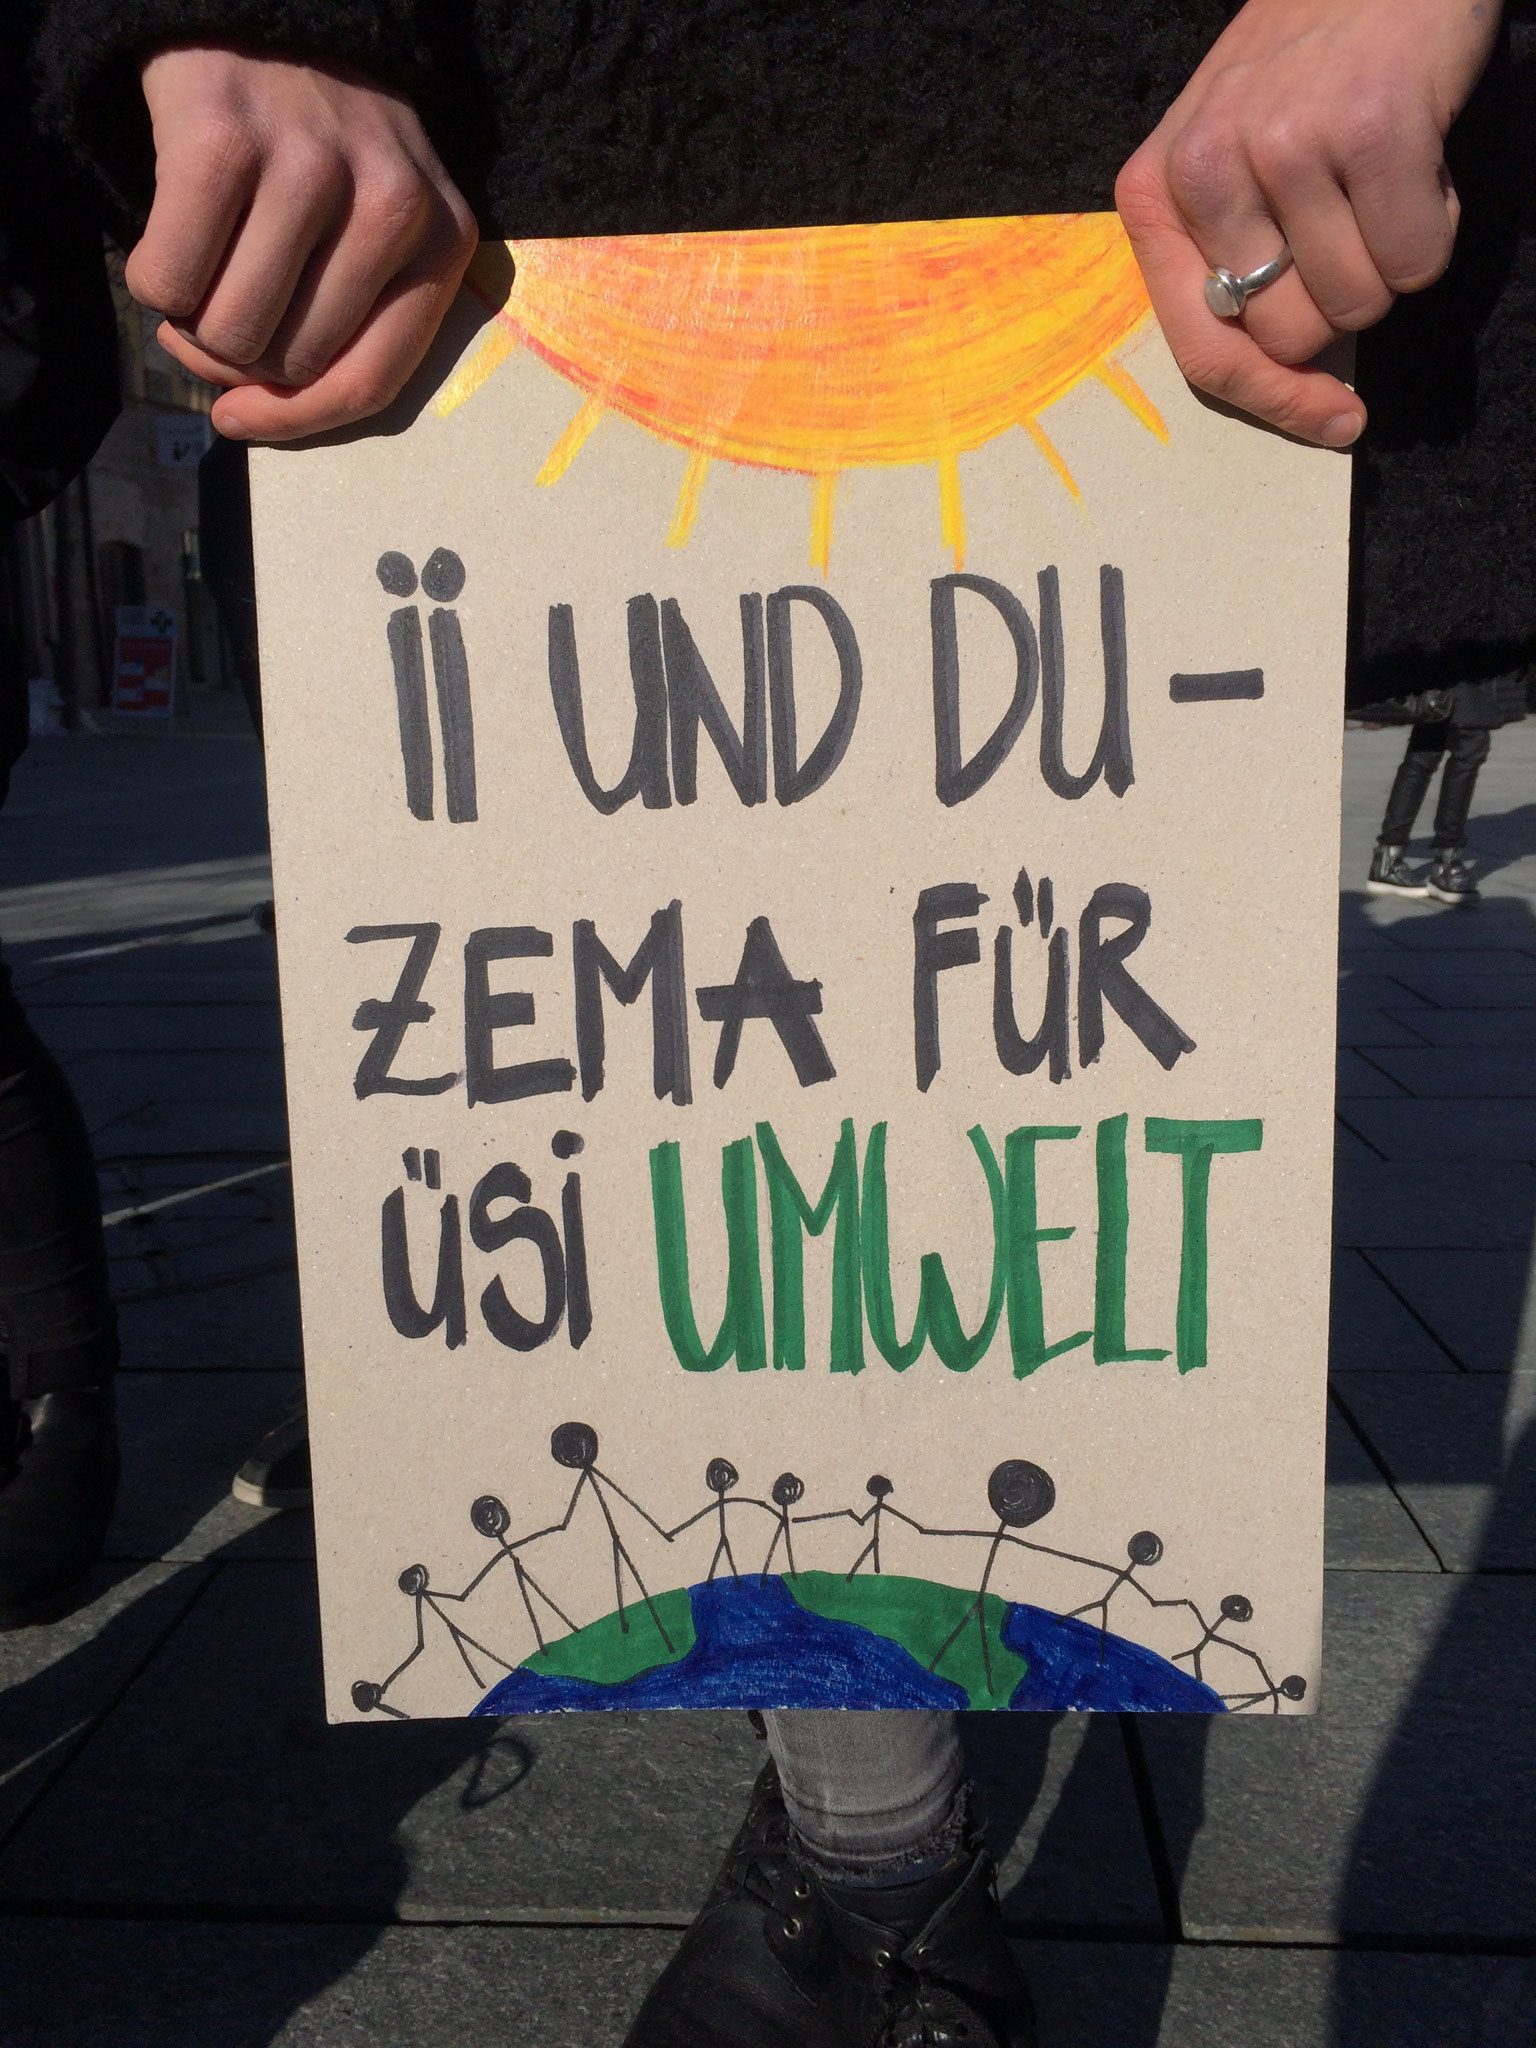 ÏÏ UND DU -
ZEMA FÜR
ÜSi UMWELT